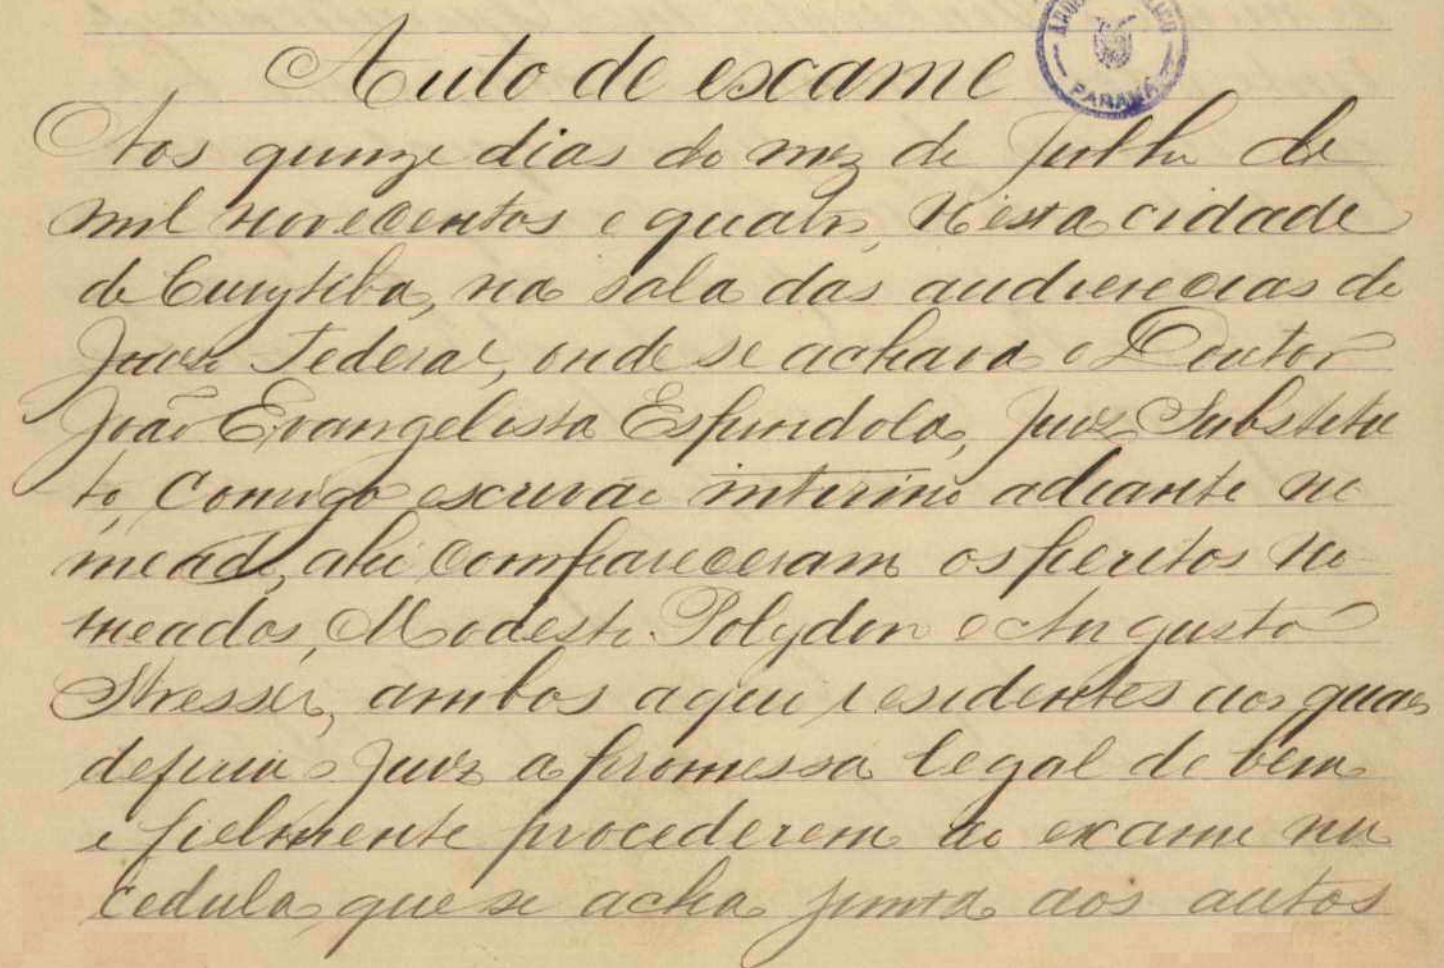 Auto de exame
PARANÁ
Aos quinze dias do mez de Julho de
mil novecentos e quatro, n'esta cidade
de Curytiba, na sala das audiencias do
Juizo Federal, onde se achava o Doutor
João Evangelista Espindola, Juiz Substitu
to, comigo escrivão interino adiante no
meado, ahi compareceram os peritos no
meados, Modesto Polydoro e Augusto
Stresser, ambos aqui residentes aos quaes
deferiu o Juiz a promessa legal de bem
e fielmente procederem ao exame na
cedula que se acha junta aos autos